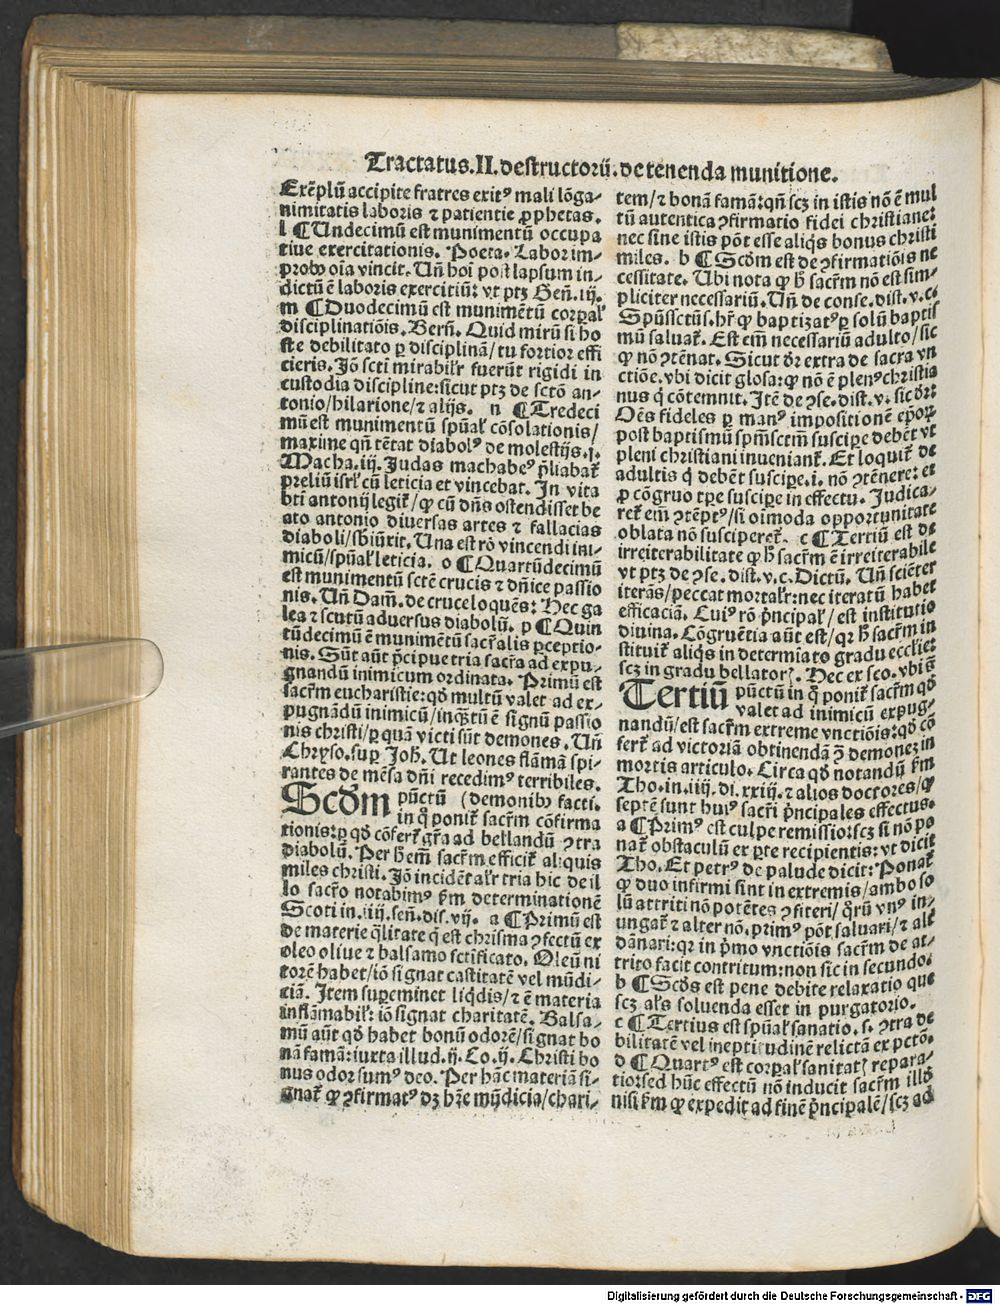 Tractatus.II.destructorū.de tenenda munitione.
Exēplū accipite fratres exitꝰ mali lōga-
nimitatis laboris ⁊ patientie ꝓphetas.
l ¶ Undecimū est munimentū occupa
tiue exercitationis. Poeta. Labor im-
probꝰ oīa vincit. Uñ hoī post lapsum in-
dictū ē laboris exercitiū: vt ptꝫ Geñ. iij.
m ¶ Duodecimū est munimētū corꝑal̛
disciplinatiōis. Berñ. Quid mirū si ho
ste debilitato ꝑ disciplinā/tu fortior effi
cieris. Iō scti mirabil̛r fuerūt rigidi in
custodia discipline:sicut ptꝫ de sctō an-
tonio/hilarione/⁊ alijs. n ¶ Tredeci
mū est munimentū spūal̛ cōsolationis/
maxime qñ tētat diabolꝰ de molestijs.j.
Macha.iij. Judas machabeꝰ p̄liabat̛
preliū isrl̛ cū leticia et vincebat. In vita
bt̄i antonij legit̛/ꝙ cū dn̄s ostendisset be
ato antonio diuersas artes ⁊ fallacias
diaboli/sb̄iūxit, Una est rō vincendi ini-
micū/spūal̛ leticia. o ¶ Quartūdecimū
est munimentū sctē crucis ⁊ dn̄ice passio
nis. Uñ Dam̄. de cruce loquēs: Hec ga
lea ⁊ scutū aduersus diabolū. p ¶ Quin
tūdecimū ē munimētū sacr̄alis ꝑceptio-
nis. Sūt aūt p̄cipue tria sacr̄a ad expu-
gnandū inimicum ordinata. Primū est
sacr̄m eucharistie:qd̄ multū valet ad ex-
pugnādū inimicū/inq̄tū ē signū passio
nis christi/ꝑ quā victi sūt demones. Uñ
Chryso.suꝑ Joh̄. Ut leones flāmā spi-
rantes de mēsa dn̄i recedimꝰ terribiles.
Scd̄m pūctū (demonibꝰ facti.
in q̄ ponit̛ sacr̄m cōfirma
tionis:ꝑ qd̄ cōfert̛ gr̄a ad bellandū ↄtra
diabolū. Per h̄ em̄ sacr̄m efficit̛ aliquis
miles christi. Iō incidēt al̛r tria hic de il
lo sacr̄o notabimꝰ km̄ determinationē
Scoti in.iiij.señ.dis.vij. a ¶ Primū est
de materie q̄litate q̄ est chrisma ↄfectū ex
oleo oliue ⁊ balsamo sctificato. Oleū ni
torē habet/iō signat castitatē vel mūdi-
ciā. Item suꝑeminet liq̄dis/⁊ ē materia
inflāmabil̛: iō signat charitatē. Balsa-
mū aūt qd̄ habet bonū odorē/signat bo
nā famā:iuxta illud.ij.Co.ij. Christi bo
nus odor sumꝰ deo. Per hāc materiā si-
gnat̛ ꝙ ↄfirmatꝰ dꝫ hr̄e mūdicia/chari-
tem/⁊ bonā famā:qñ scꝫ in istis nō ē mul
tū autentica ↄfirmatio fidei christiane:
nec sine istis pōt esse aliq̄s bonus christi
miles. b ¶ Scd̄m est de ↄfirmatiōis ne
cessitate. Ubi nota ꝙ h̄ sacr̄m nō est sim-
pliciter necessariū. Uñ de conse.dist.v.c.
Spūssctūs.hr̄ ꝙ baptizatꝰ ꝑ solū baptis
mū saluat̛. Est em̄ necessariū adulto/sic
ꝙ nō ↄtēnat. Sicut dr̄ extra de sacra vn
ctiōe.vbi dicit glosa:ꝙ nō ē plenꝰ christia
nus q̄ cōtemnit. Itē de ↄse.dist.v. sic dr̄:
Oēs fideles ꝑ manꝰ impositionē epōꝝ
post baptismū spm̄sctm̄ suscipe debēt vt
pleni christiani inueniant̛. Et loquit̛ de
adultis q̄ debēt suscipe.i. nō ↄtēnere: et
ꝓ cōgruo tꝑe suscipe in effectu. Judica-
ret̛ em̄ ↄtēptꝰ/si oīmoda opportunitate
oblata nō susciperet̛. c ¶ Tertiū est de
irreiterabilitate ꝙ h̄ sacr̄m ē irreiterabile
vt ptꝫ de ↄse. dist.v.c.Dictū. Uñ sciēter
iterās/peccat mortal̛r:nec iteratū habet
efficaciā. Cuiꝰ rō p̄ncipal̛/est institutio
diuina. Cōgruētia aūt est/qꝛ h̄ sacr̄m in
stituit̛ aliq̄s in determīato gradu ecclie:
scꝫ in gradu bellatorꝝ. Hec ex sco.vbi s̄
Tertiū pūctū in q̄ ponit̛ sacr̄m qd̄
valet ad inimicū expug-
nandū/est sacr̄m extreme vnctiōis:qd̄ cō
fert̛ ad victoriā obtinendā ↄ̄ demonez in
mortis articulo. Circa qd̄ notandū km̄
Tho.in.iiij.di.xxiij.⁊ alios doctores/ꝙ
septē sunt huiꝰ sacr̄i p̄ncipales effectus.
a ¶ Primꝰ est culpe remissio:scꝫ si nō po
nat̛ obstaculū ex ꝑte recipientis: vt dicit
Tho. Et petrꝰ de palude dicit: Ponat̛
ꝙ duo infirmi sint in extremis/ambo so
lū attriti nō potētes ↄfiteri/ q̄rū vnꝰ in-
ungat̛ ⁊ alter nō. primꝰ pōt saluari/⁊ alt̛
dānari:qꝛ in p̄mo vnctiōis sacr̄m de at-
trito facit contritum:non sic in secundo.
b ¶ Scd̄s est pene debite relaxatio que
scꝫ al̛s soluenda esset in purgatorio.
c ¶ Tertius est spūal̛ sanatio.s. ↄtra de
bilitatē vel ineptitudinē relictā ex pctō.
d ¶ Quartꝰ est corꝑal̛ sanitatꝭ repara-
tio:sed hūc effectū nō inducit sacr̄m illd̄
nisi km̄ ꝙ expedit ad finē p̄ncipalē/scꝫ ad
Digitalisierung gefördert durch die Deutsche Forschungsgemeinschaft - DFG